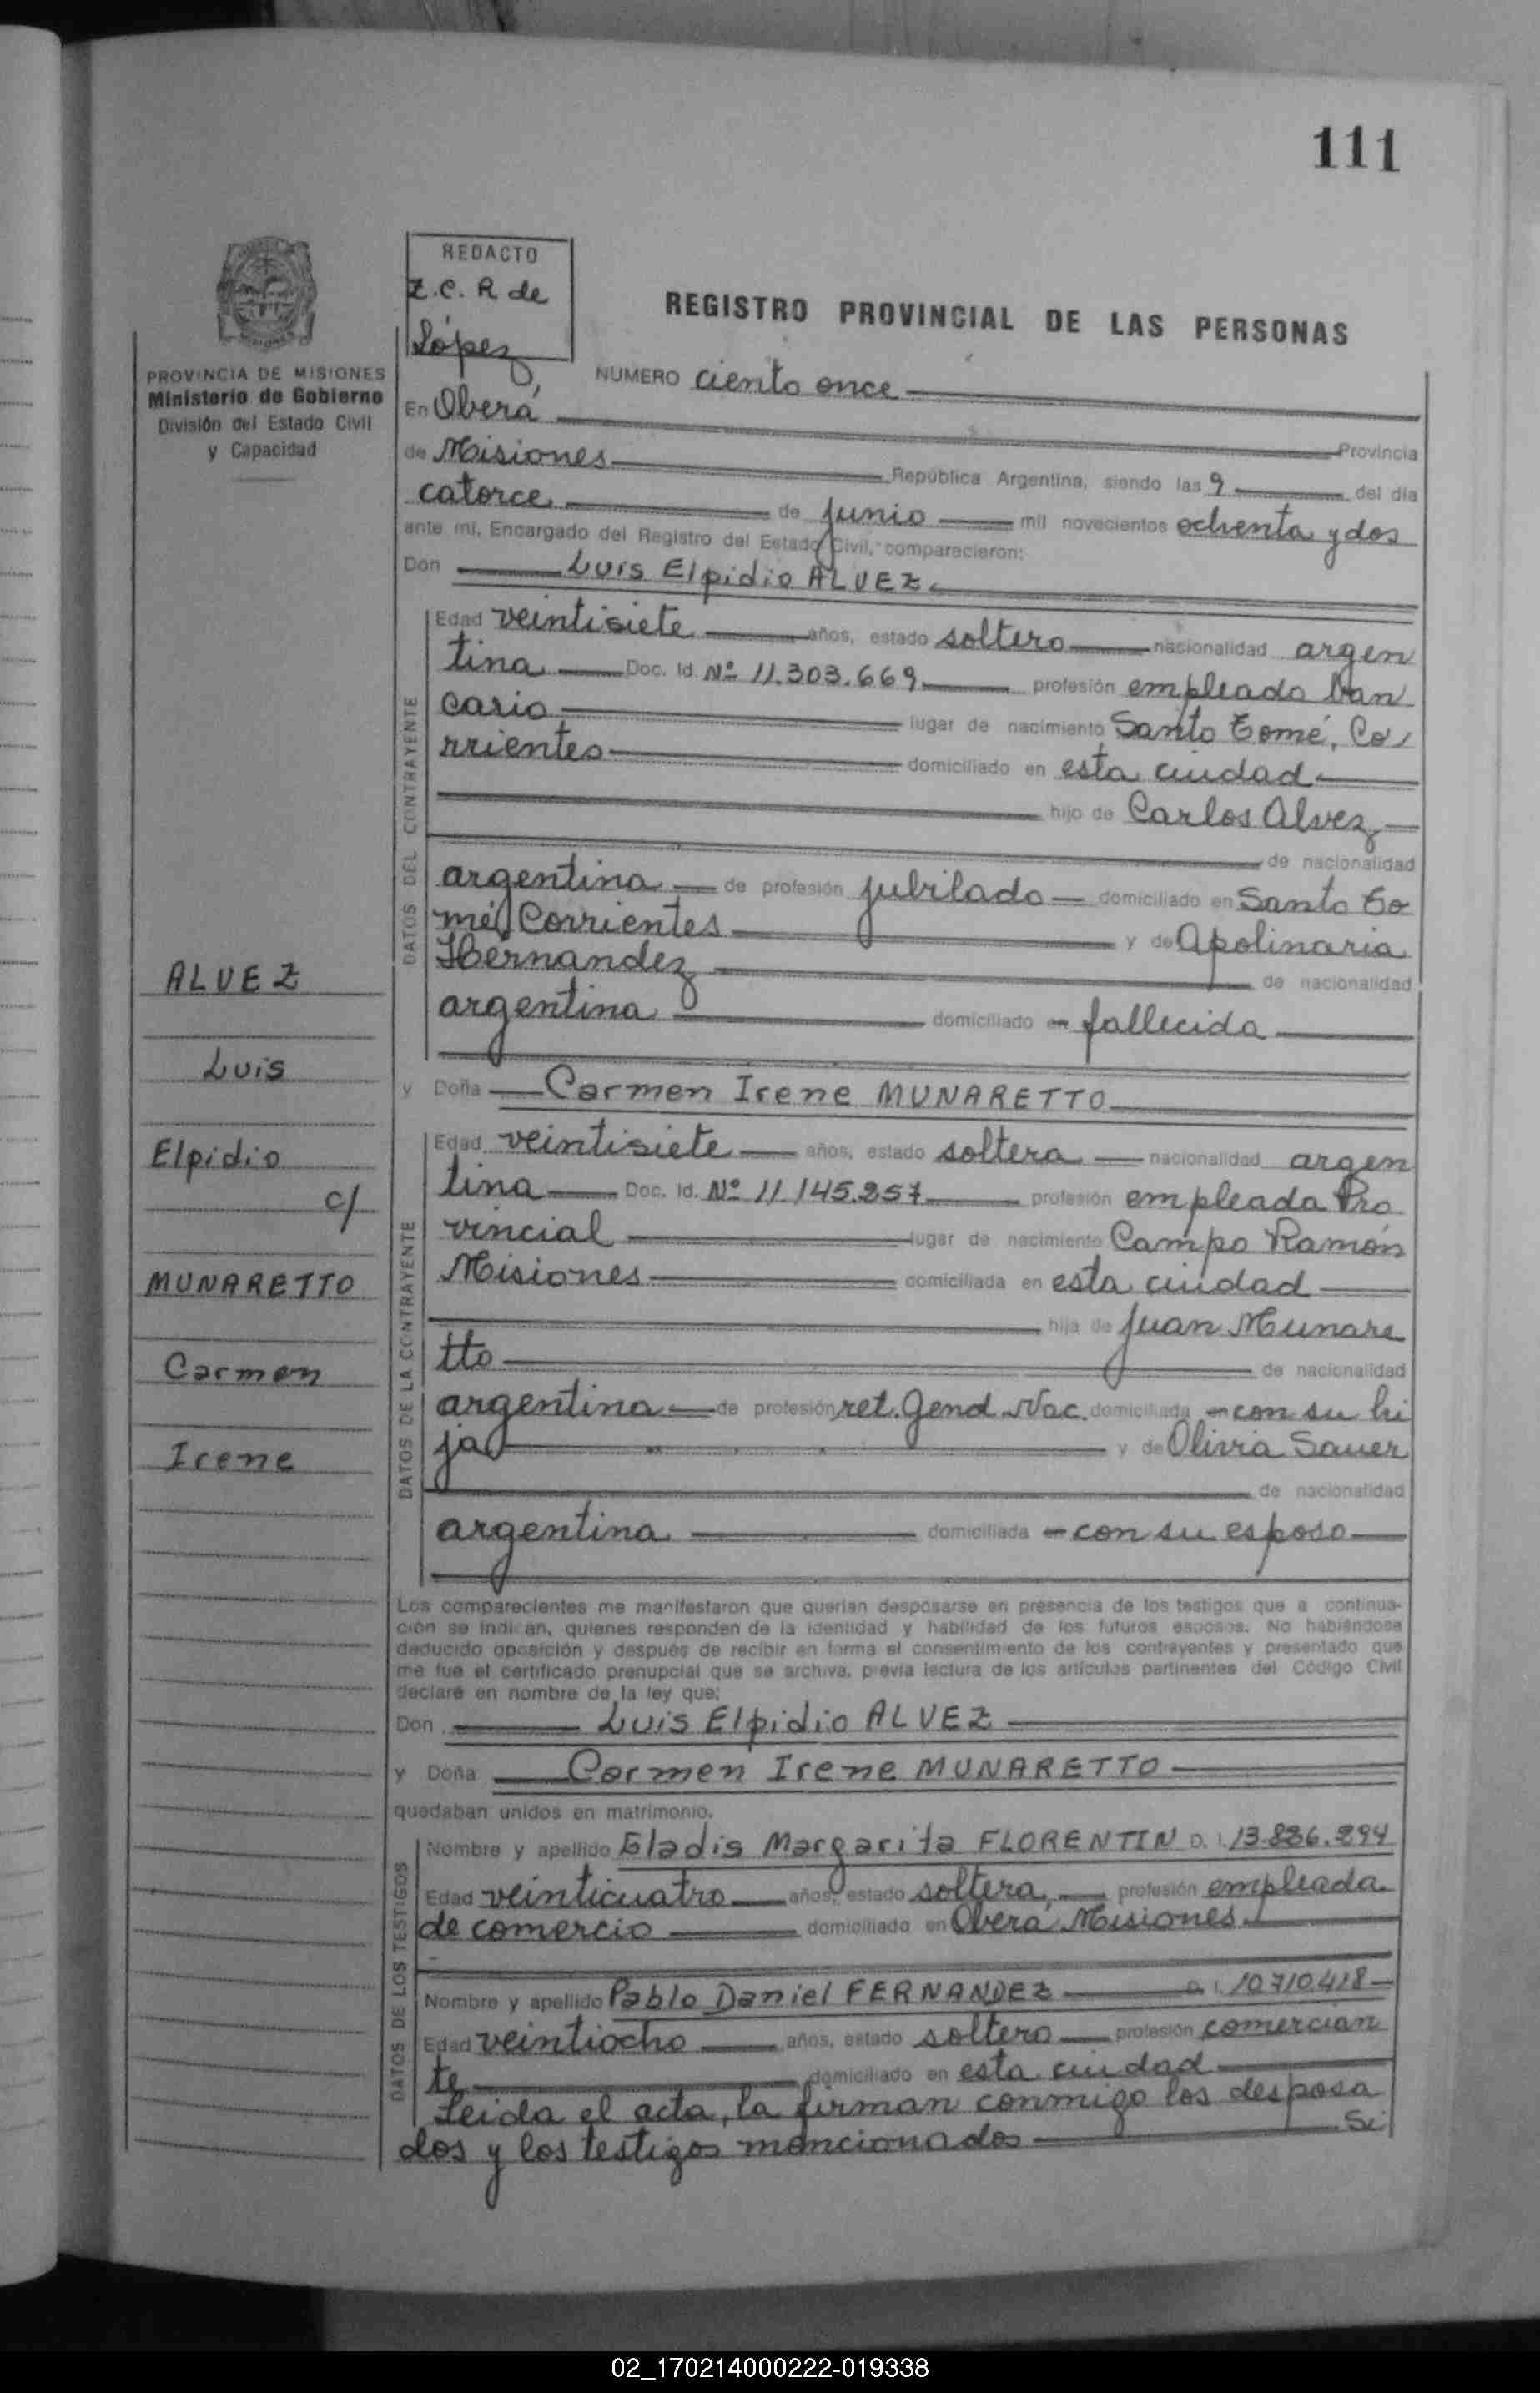 111
REDACTO
Z.C.R de
López
REGISTRO PROVINCIAL DE LAS PERSONAS
PROVINCIA DE MISIONES
Ministerio de Gobierno
División del Estado Civil
y Capacidad
NUMERO ciento once
En Oberá, Provincia
de Misiones República Argentina, siendo las 9 del día
catorce de junio mil novecientos ochenta y dos
ante mi, Encargado del Registro del Estado Civil, comparecieron:
Don Luis Elpidio ALVEZ
DATOS DEL CONTRAYENTE
Edad veintisiete años, estado soltero nacionalidad argen
tina Doc. Id. Nº 11.303.669 profesión empleado ban
cario lugar de nacimiento Santo Tomé, Co/
rrientes domiciliado en esta ciudad
hijo de Carlos Alvez
de nacionalidad
argentina de profesión jubilado domiciliado en Santo To
mé, Corrientes y de Apolinaria
Hernandez de nacionalidad
argentina domiciliado en fallecida
y Doña Carmen Irene MUNARETTO
DATOS DE LA CONTRAYENTE
Edad veintisiete años, estado soltera nacionalidad argen
tina Doc. Id. Nº 11.145.257 profesión empleada Pro
vincial lugar de nacimiento Campo Ramón
Misiones domiciliada en esta ciudad
hija de Juan Munare
tto de nacionalidad
argentina de profesión ret. Gend. Nac. domiciliada en con su hi
ja y de Olivia Sauer
de nacionalidad
argentina domiciliada en con su esposo
Los comparecientes me manifestaron que querían desposarse en presencia de los testigos que a continua-
ción se indican, quienes responden de la identidad y habilidad de los futuros esposos. No habiéndose
deducido oposición y después de recibir en forma el consentimiento de los contrayentes y presentado que
me fue el certificado prenupcial que se archiva, previa lectura de los artículos pertinentes del Código Civil
declaré en nombre de la ley que:
Don Luis Elpidio ALVEZ
y Doña Carmen Irene MUNARETTO
quedaban unidos en matrimonio.
DATOS DE LOS TESTIGOS
Nombre y apellido Gladis Margarita FLORENTIN D. I. 13.886.294
Edad veinticuatro años, estado soltera profesión empleada
de comercio domiciliado en Oberá, Misiones
Nombre y apellido Pablo Daniel FERNANDEZ D. I. 10.710.418
Edad veintiocho años, estado soltero profesión comercian
te domiciliado en esta ciudad
Leida el acta, la firman conmigo los desposa
dos y los testigos mencionados Si
ALVEZ
Luis
Elpidio
c/
MUNARETTO
Carmen
Irene
02_170214000222-019338